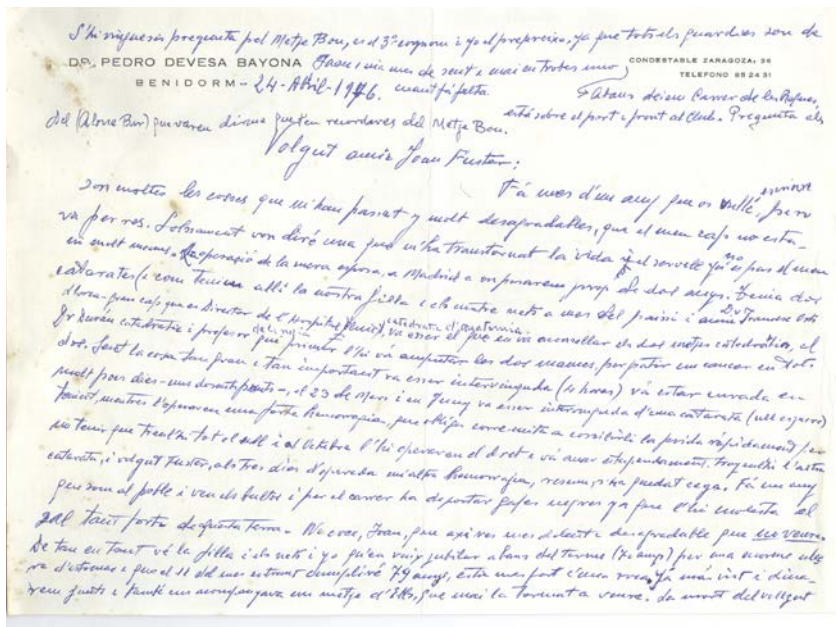 S'hi vinguesas pregunta pel Metje Bou, es el 3er cognom i yo el prepreixo, ya que tots els guardies son de
DR. PEDRO DEVESA BAYONA
fasa i via mes de sent e mai en trobes uno
CONDESTABLE ZARAGOZA, 36
BENIDORM - 24 - Abril - 1976. cuant fa falta.
TELEFONO 85 24 31
Abans deien Carrer de les
está sobre el port e front al Club. Pregunta als
del que varen dirme que t'en recordaves del Metje Bou.
Volgut amic Joan Fuster:
Fá mes d'un any que os vullc escriure, pero
son moltes les coses que m'han passat y molt desagradables, que el meu cap no esta-
va per res. Solsament vos diré una que m'ha transtornat la vida y el servell ya no es pas el meu
ni molt menys. La operació de la meva esposa, a Madrid a on posarem prop de dos anys. Tenia dos
catarates (i com teniem allí la nostra filla e els cuatre nets a mes del paisá i amic Dr Francesc Orts
Llorca - gran cap que es Director de l'Hospital Clinic, catedratic d'anatomia, va esser el que en va aconsellar els dos metjes catedratics, el
Dr Durán catedratic i profesor de cirujia que primer l'hi vá amputar les dos mames, per patir un cancer en tots
dos. Sent la cosa tan gran e tan important va esser intervinguda (4 hores) vá estar curada en
molt pocs dies - uns doscents punts -, el 23 de Mars i en Juny va esser intervinguda d'una catarata (ull esquerro)
tenint, mentres l'operaven una forta hemorragia, que obliga corre-cuita a cosirli la ferida rápidament per
no tenir que treuli tot el ull i al Octubre l'hi operaren el dret e vá anar estupendament. treguentli l'altra
catarata, i volgut Fuster, als tres dies d'operada un'altra hemorragia, resum, s'ha quedat cega. Fá un any
que som al poble i veu els bultos i per el carrer ha de portar gafes negres ya que l'hi molesta el
sol tant forta d'aquesta terra. - No creu, Joan, que axí res mes dolent e desagradable que no veure.
De tan en tant vé la filla i els nets i yo qu'em vaig jubilar abans del terme (70 anys) per una enorme ulcera
d'estomac e que el 11 del mes entrant cumpliré 79 anys, estic mes fort c'una roca. Ya más vist i dina-
rem junts e també ens acompanyava un metje d'Elx, que mai l'a tornat a veure. La mort del vollgut